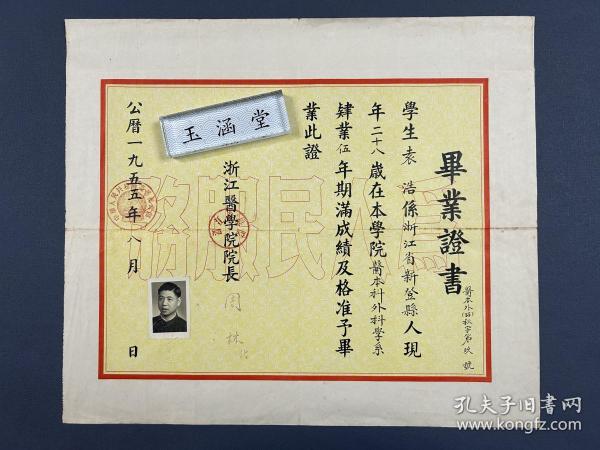 畢業證書
醫本外(55)秋字第玖號
學生袁浩係浙江省新登縣人現
年二十八歲在本學院醫本科外科學系
肄業伍年期滿成績及格准予畢
業此證
浙江醫學院院長
周林
公曆一九五五年八月 日
為人民服務
玉涵堂
孔夫子旧书网
www.kongfz.com